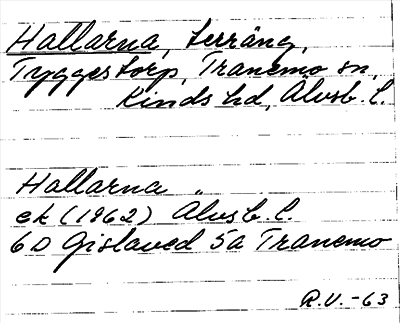 Hallarna, terräng,
Tryggestorp, Tranemo sn,
Kinds hd, Älvsb. l.
Hallarna "
ek (1962) Älvsb. l.
6D Gislaved 5a Tranemo
R.V.-63